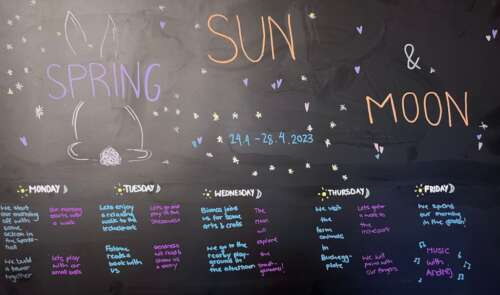 SPRING
SUN
&
MOON
24.4 - 28.4.2023
MONDAY
We start
our morning
off with
some
in the Sports-
hall
Our morning
starts with
a walk
We build
a tower
together
Lets play
with our
small balls
TUESDAY
Lets enjoy
a relaxing
walk to the
Irchelpark
Lets go and
play in the
reads a
book with
us
will read &
show us
a story
WEDNESDAY
Bianca joins
us for some
arts & crafts
We go to the
nearby play-
ground in
the afternoon
The
moon
will
explore
the
THURSDAY
We visit
the
farm
animals
in
Bucheggplatz
Lets
a walk to
the
Irchelpark
We will
paint with
our fingers
FRIDAY
We spend our
morning
in the
MUSIC
with
Andrej